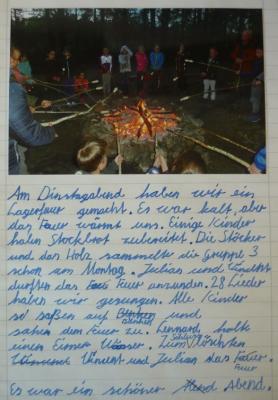 Am Dinstagabend haben wir ein
Lagerfeuer gemacht. Es war kalt, aber
das Feuer wärmt uns. Einige Kinder
haben Stockbrot zubereitet. Die Stöcker
und das Holz sammelte die Gruppe 3
schon am Montag. Julian und Vincent
durften das Feuer anzünden. 28 Lieder
haben wir gesungen. Alle Kinder
saßen auf und
sahen dem Feuer zu. Lennard holte
einen Eimer Wasser. Zum Schluss löschten
Vincent und Julian das Feuer.
Feuer
Es war ein schöner Abend.